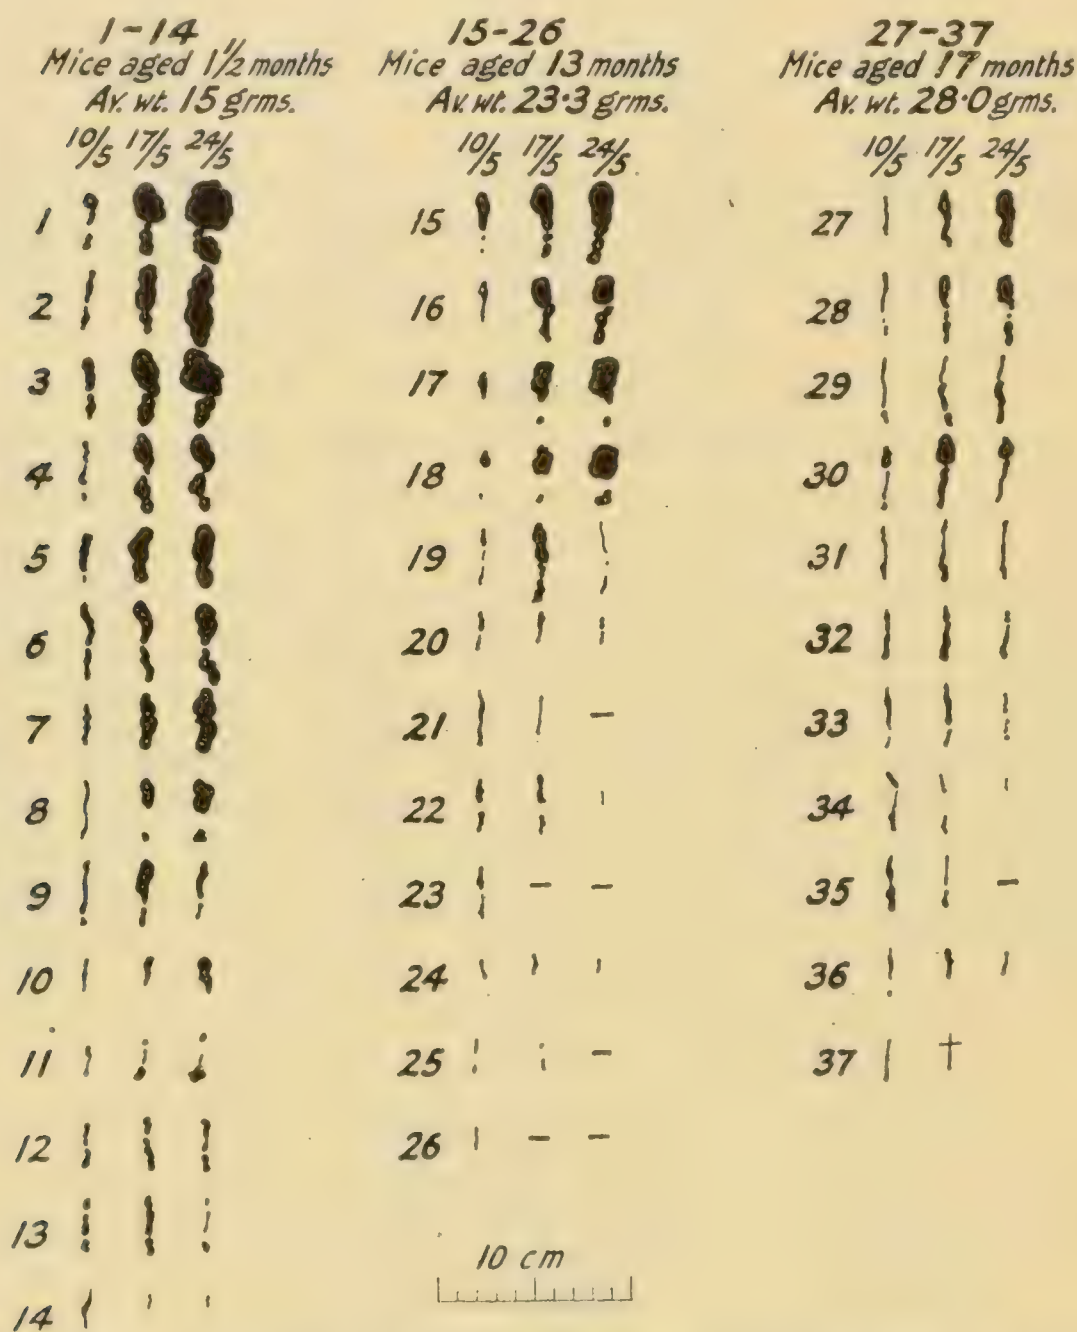 1-14
Mice aged 1 1/2 months
Av. wt. 15 grms.
10/5 17/5 24/5
1
2
3
4
5
6
7
8
9
10
11
12
13
14
15-26
Mice aged 13 months
Av. wt. 23·3 grms.
10/5 17/5 24/5
15
16
17
18
19
20
21 —
22
23 — —
24
25 —
26 — —
10 cm
27-37
Mice aged 17 months
Av. wt. 28·0 grms.
10/5 17/5 24/5
27
28
29
30
31
32
33
34
35 —
36
37 †